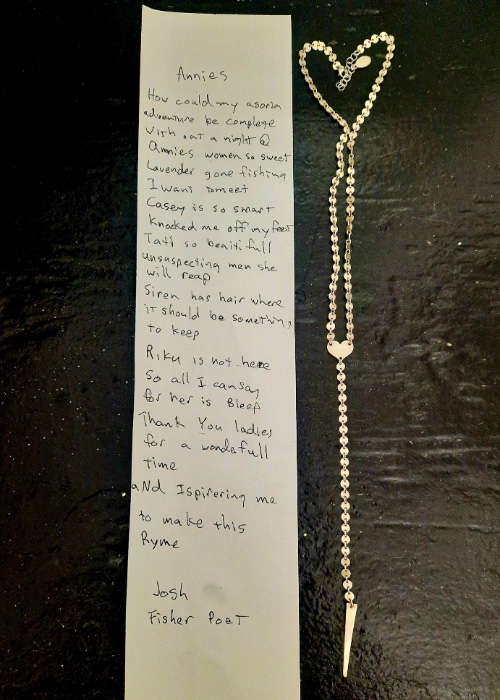 Annies
How could my asoria
adventure be complete
with out a night @
Annies women so sweet
Lavender gone fishing
I want to meet
Casey is so smart
Knocked me off my feet
Tati so beaitifull
unsuspecting men she
will reap
Siren has hair where
it should be something
to keep
Riku is not here
So all I can say
for her is Bleep
Thank You ladies
for a wondefull
time
aNd Ispirering me
to make this
Ryme
Josh
Fisher Poet